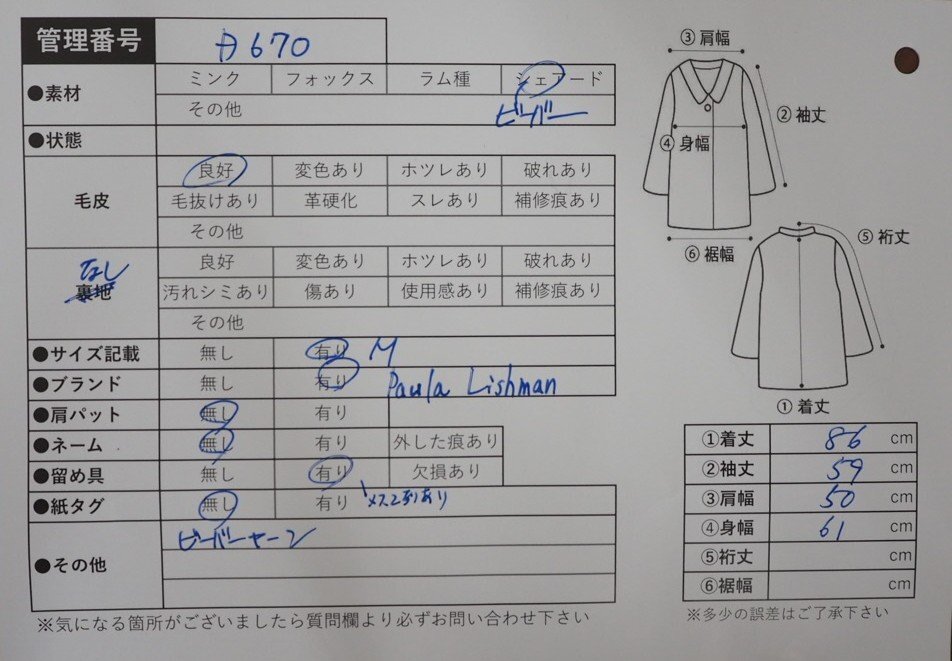 管理番号 A670
●素材 ミンク フォックス ラム種 シェアード
その他 ビーバー
●状態
毛皮 良好 変色あり ホツレあり 破れあり
毛抜けあり 革硬化 スレあり 補修痕あり
その他
なし
裏地 良好 変色あり ホツレあり 破れあり
汚れシミあり 傷あり 使用感あり 補修痕あり
その他
●サイズ記載 無し 有り M
●ブランド 無し 有り Paula Lishman
●肩パット 無し 有り
●ネーム 無し 有り 外した痕あり
●留め具 無し 有り 欠損あり
●紙タグ 無し 有り
●その他 ビーバーヤーン
※気になる箇所がございましたら質問欄より必ずお問い合わせ下さい
③ 肩幅
② 袖丈
④ 身幅
⑥ 裾幅
⑤ 裄丈
① 着丈
①着丈 86 cm
②袖丈 59 cm
③肩幅 50 cm
④身幅 61 cm
⑤裄丈 cm
⑥裾幅 cm
※多少の誤差はご了承下さい